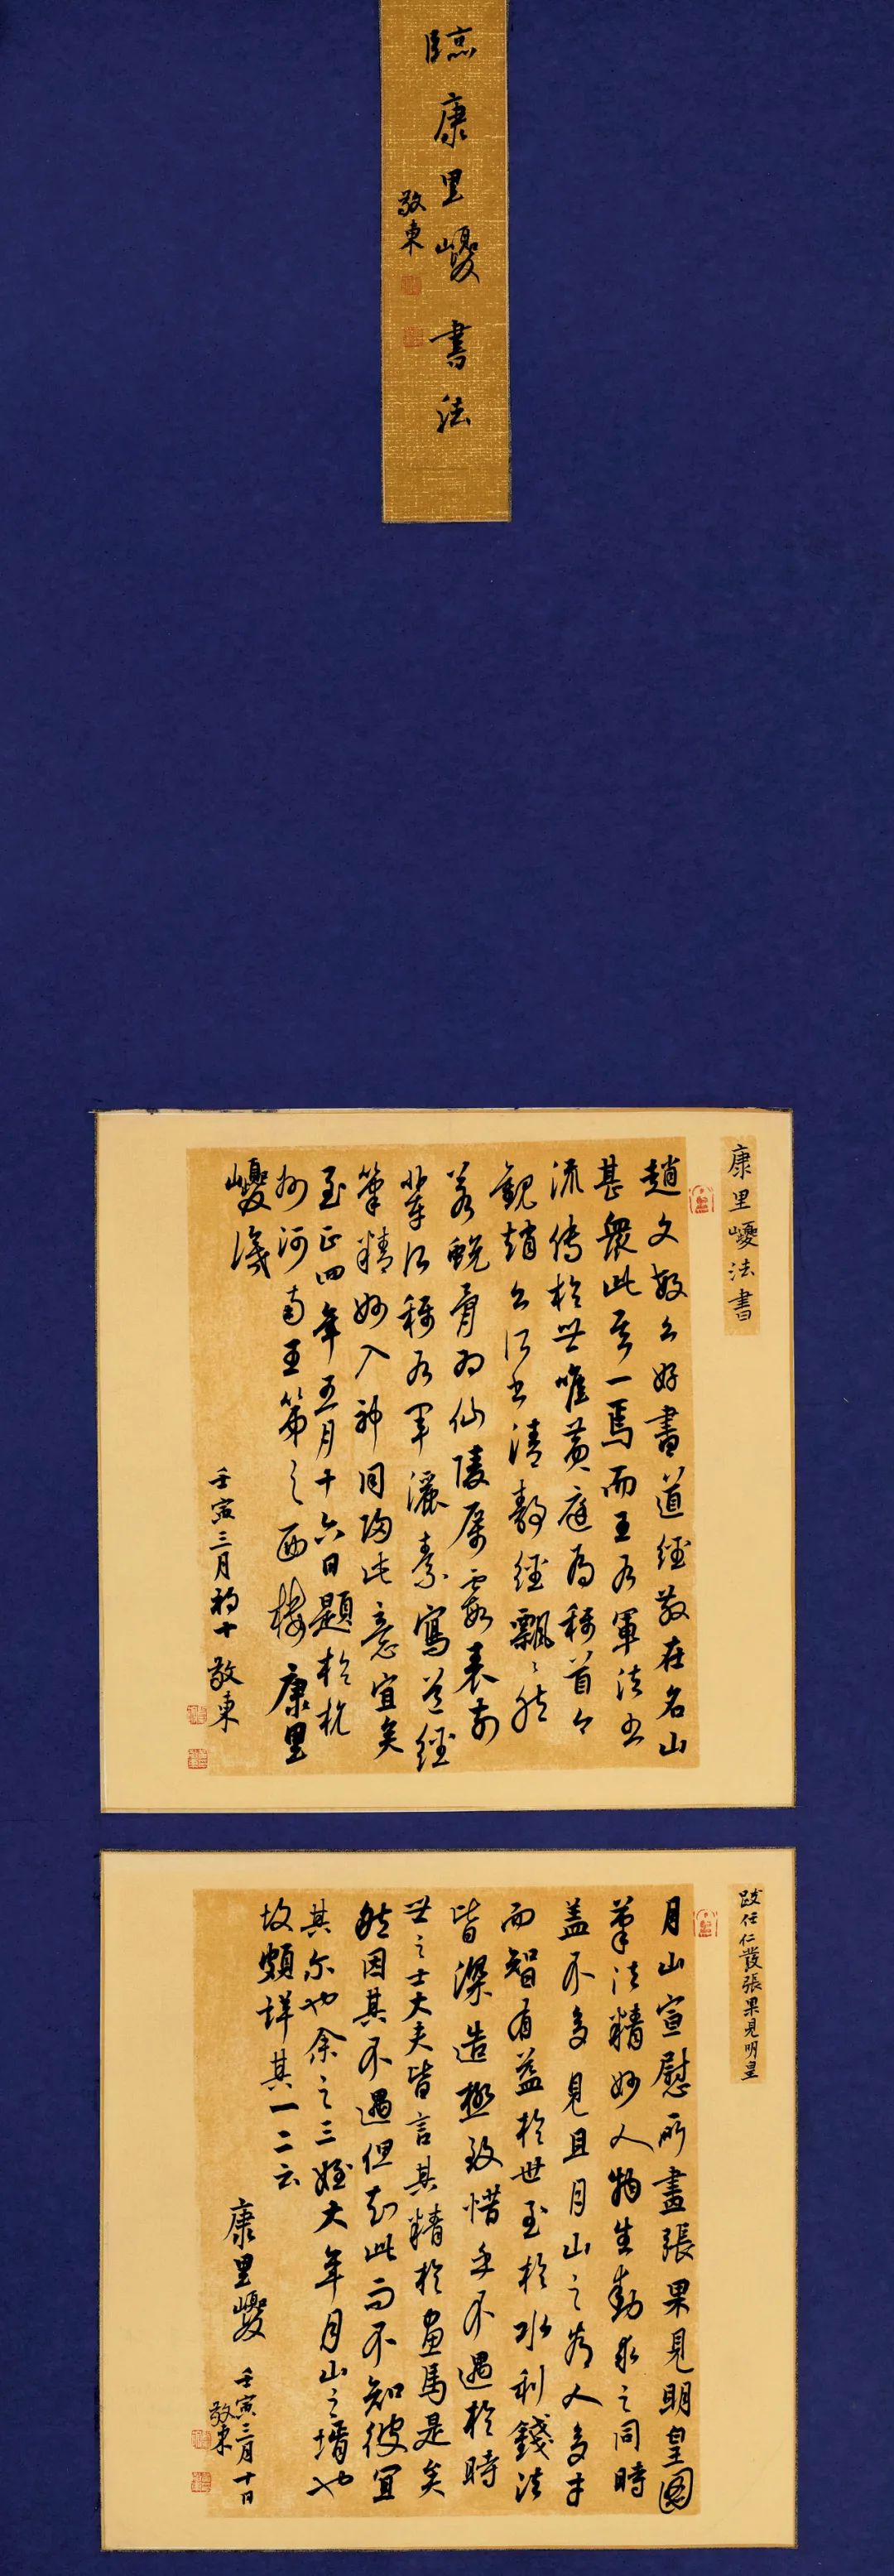 臨康里巎書法
敬東
康里巎法書
趙文敏公好書道經散在名山
甚衆此其一焉而王右軍法書
流傳於世唯黃庭為稱首今
觀趙公所書清靜經飄〻然
若蛻骨為仙陵厲霞表前
輩以稱右軍灑素寫道經
筆精妙入神同為此意宜矣
至正四年五月十六日題於杭
州河南王第之西樓康里
巎識
壬寅三月初十敬東
跋任仁發張果見明皇
月山宣慰所畫張果見明皇圖
筆法精妙人物生動求之同時
蓋不多見且月山之為人多才
而智有益於世至於水利錢法
皆深造極致惜乎不遇於時
世之士大夫皆言其精於畫馬是矣
然因其不遇但知此而不知彼宜
其尔也余之三姪大年月山之壻也
故頗詳其一二云
康里巎
壬寅三月十日
敬東